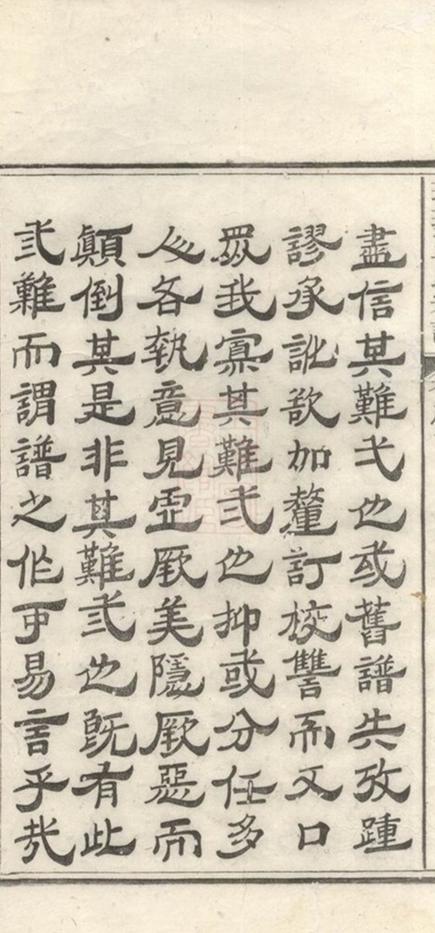 盡信其難弌也或舊譜失攷踵
謬承訛欲加釐訂校讐而又口
眾我寡其難弍也抑或分任多
人各執意見虛厥美隱厥惡而
顛倒其是非其難弎也既有此
弎難而謂譜之作可易言乎哉